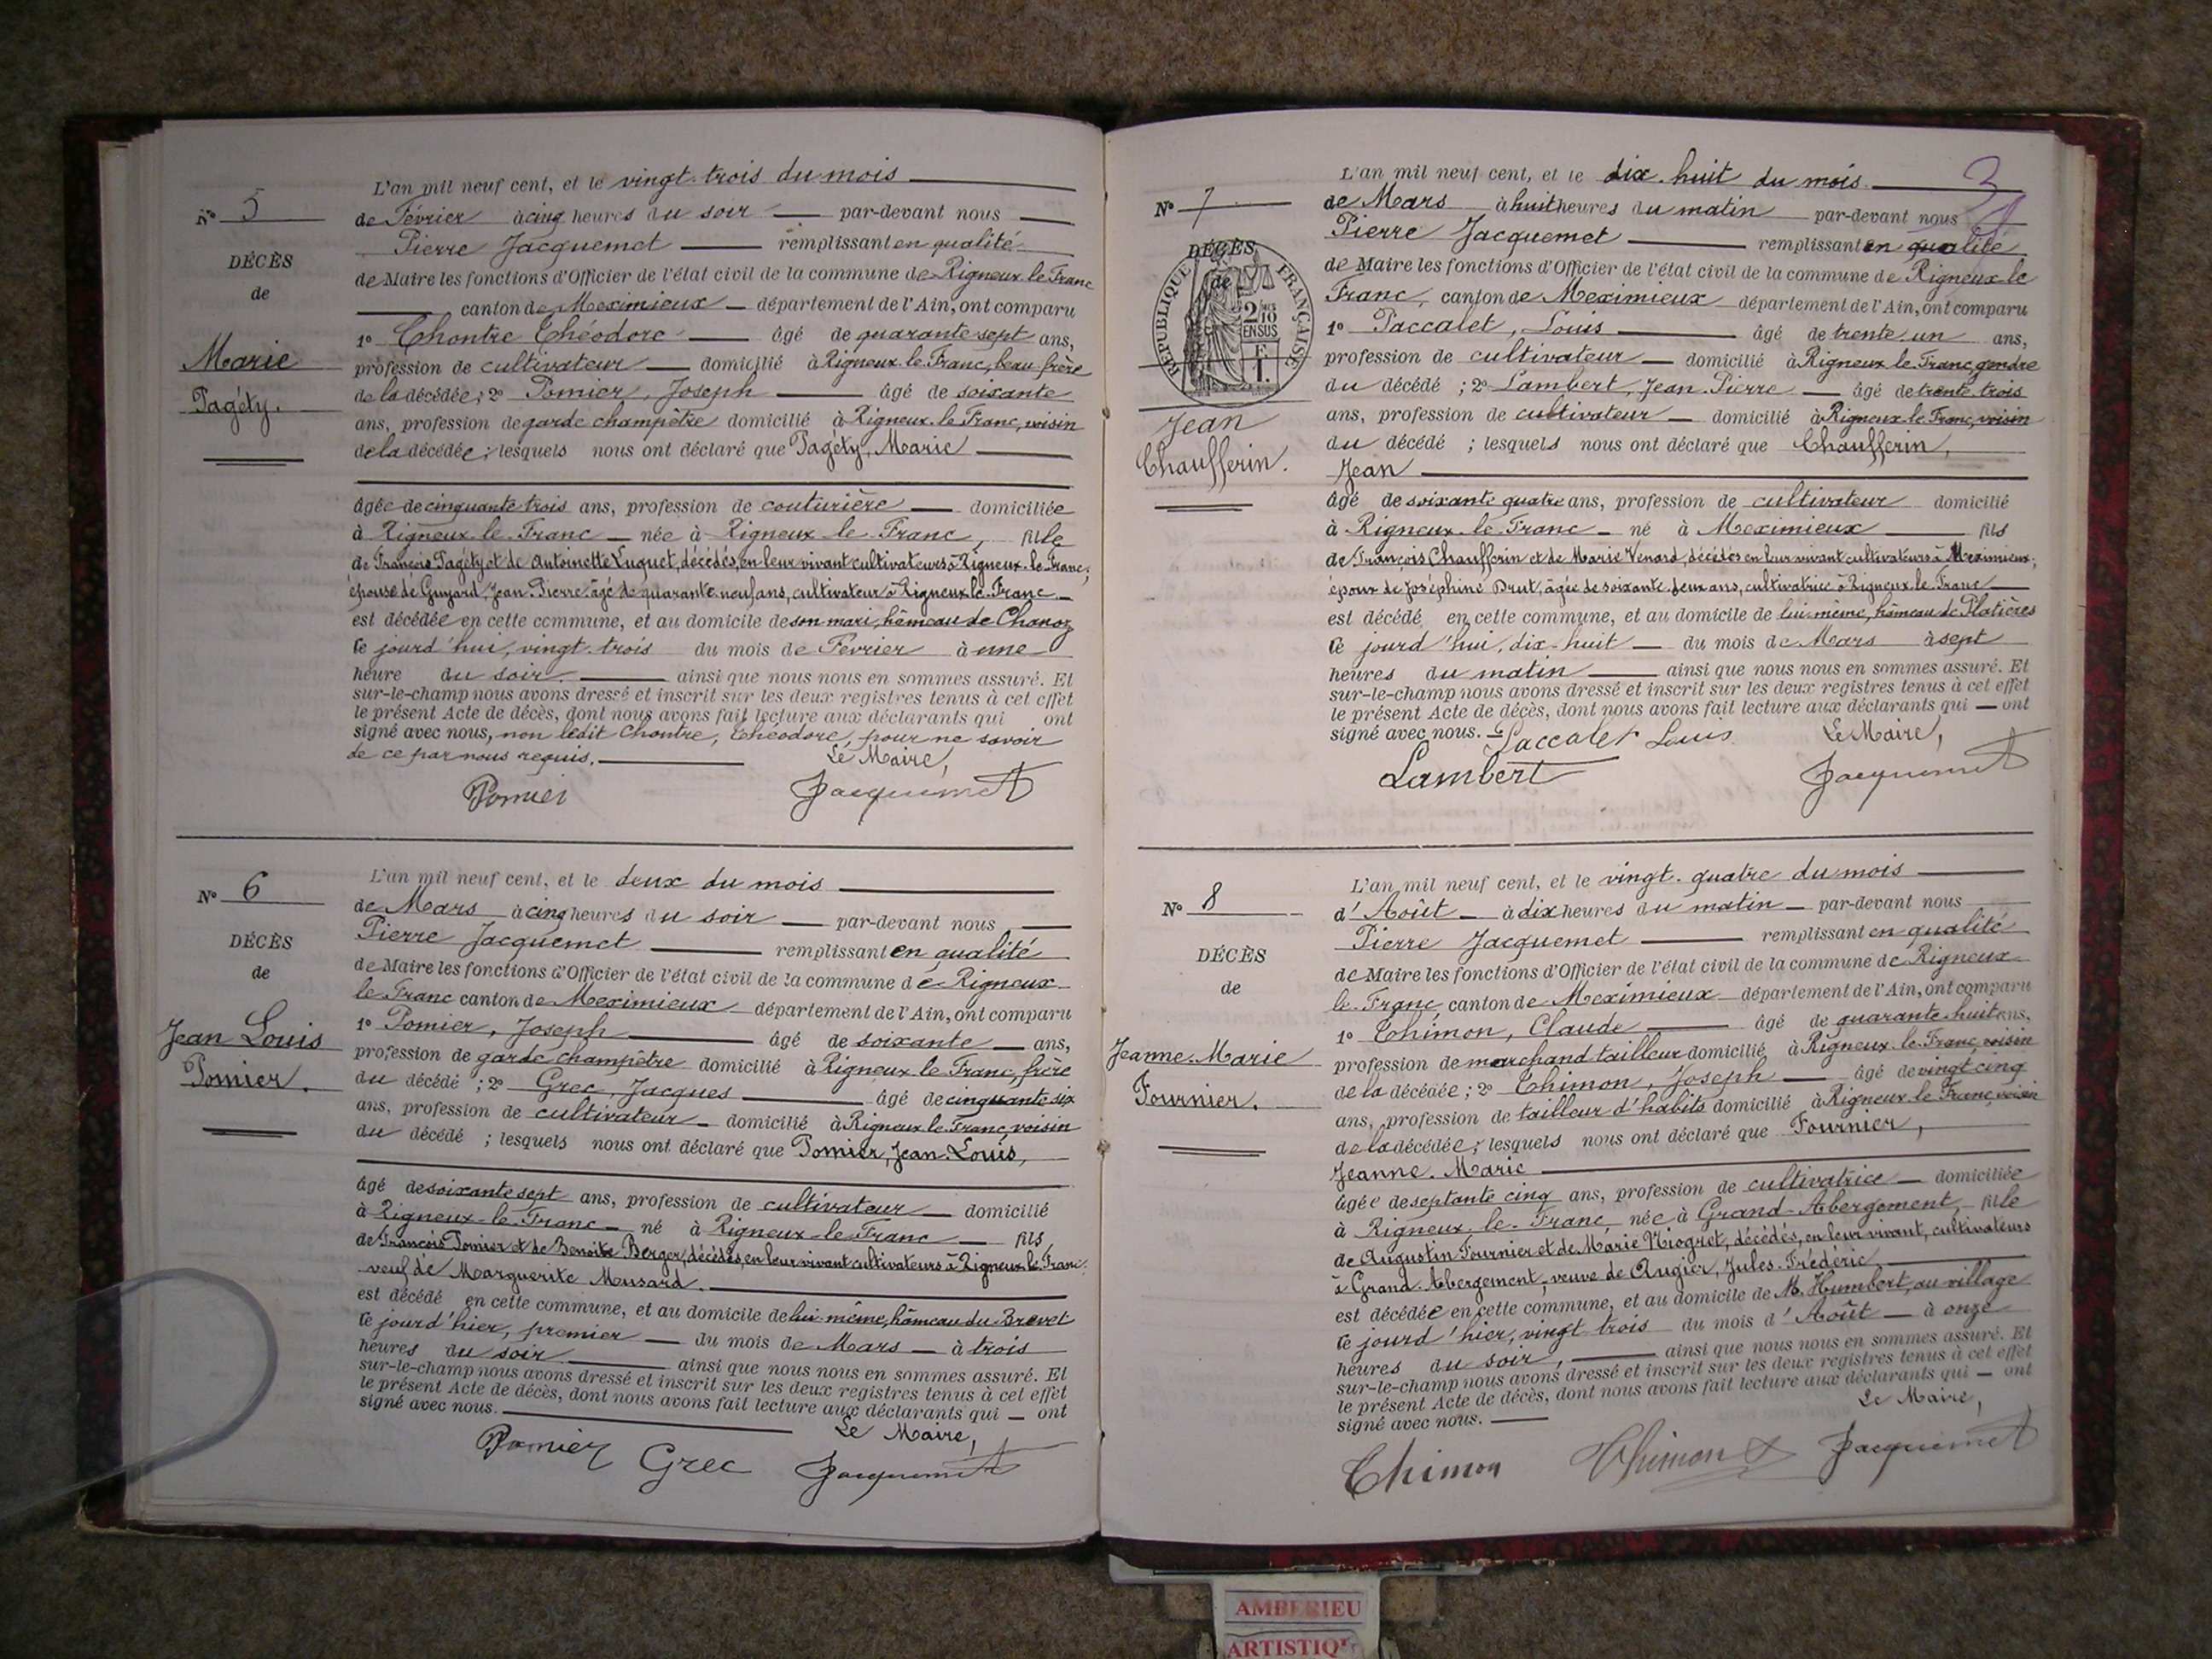 N° 5
DÉCÈS
de
Marie
Pagéty.
L'an mil neuf cent, et le vingt-trois du mois
de Février à cinq heures du soir par-devant nous
Pierre Jacquemet remplissant en qualité
de Maire les fonctions d'Officier de l'état civil de la commune de Rigneux-le-Franc
canton de Meximieux département de l'Ain, ont comparu
1° Chontre Théodore âgé de quarante-sept ans,
profession de cultivateur domicilié à Rigneux-le-Franc, beau-frère
de la décédée; 2° Pomier, Joseph âgé de soixante
ans, profession de garde champêtre domicilié à Rigneux-le-Franc, voisin
de la décédée; lesquels nous ont déclaré que Pagéty, Marie
âgée de cinquante-trois ans, profession de couturière domiciliée
à Rigneux-le-Franc née à Rigneux-le-Franc, fille
de François Pagéty et de Antoinette Luquet, décédés, en leur vivant cultivateurs à Rigneux-le-Franc;
épouse de Guyard, Jean-Pierre âgé de quarante-neuf ans, cultivateur à Rigneux-le-Franc
est décédée en cette commune, et au domicile de son mari, hâmeau de Chanoz
ce jourd'hui, vingt-trois du mois de Février à une
heure du soir. ainsi que nous nous en sommes assuré. Et
sur-le-champ nous avons dressé et inscrit sur les deux registres tenus à cet effet
le présent Acte de décès, dont nous avons fait lecture aux déclarants qui ont
signé avec nous, non ledit Chontre, Théodore, pour ne savoir
de ce par nous requis. Le Maire,
Pomier Jacquemet
N° 6
DÉCÈS
de
Jean Louis
Pomier.
L'an mil neuf cent, et le deux du mois
de Mars à cinq heures du soir par-devant nous
Pierre Jacquemet remplissant en qualité
de Maire les fonctions d'Officier de l'état civil de la commune de Rigneux-
le-Franc canton de Meximieux département de l'Ain, ont comparu
1° Pomier, Joseph âgé de soixante ans,
profession de garde champêtre domicilié à Rigneux-le-Franc, frère
du décédé; 2° Grec, Jacques âgé de cinquante-six
ans, profession de cultivateur domicilié à Rigneux-le-Franc, voisin
du décédé; lesquels nous ont déclaré que Pomier, Jean-Louis,
âgé de soixante-sept ans, profession de cultivateur domicilié
à Rigneux-le-Franc né à Rigneux-le-Franc fils
de François Pomier et de Benoite Berger, décédés, en leur vivant cultivateurs à Rigneux-le-Franc.
veuf de Marguerite Musard.
est décédé en cette commune, et au domicile de lui-même, hâmeau du Brevet
ce jourd'hier, premier du mois de Mars à trois
heures du soir ainsi que nous nous en sommes assuré. Et
sur-le-champ nous avons dressé et inscrit sur les deux registres tenus à cet effet
le présent Acte de décès, dont nous avons fait lecture aux déclarants qui ont
signé avec nous. Le Maire,
Pomier Grec Jacquemet
3
N° 7
DÉCÈS
de
RÉPUBLIQUE FRANÇAISE
2/10 EN SUS
Jean
Chaufferin.
L'an mil neuf cent, et le dix-huit du mois
de Mars à huit heures du matin par-devant nous
Pierre Jacquemet remplissant en qualité
de Maire les fonctions d'Officier de l'état civil de la commune de Rigneux-le
Franc, canton de Meximieux département de l'Ain, ont comparu
1° Paccalet, Louis âgé de trente-un ans,
profession de cultivateur domicilié à Rigneux-le-Franc, gendre
du décédé; 2° Lambert, Jean-Pierre âgé de trente-trois
ans, profession de cultivateur domicilié à Rigneux-le-Franc, voisin
du décédé; lesquels nous ont déclaré que Chaufferin,
Jean
âgé de soixante-quatre ans, profession de cultivateur domicilié
à Rigneux-le-Franc né à Meximieux fils
de François Chaufferin et de Marie Venard, décédés en leur vivant cultivateurs à Meximieux;
époux de Joséphine Brut, âgée de soixante-deux ans, cultivatrice à Rigneux-le-Franc
est décédé en cette commune, et au domicile de lui-même, hâmeau de Platières
ce jourd'hui, dix-huit du mois de Mars à sept
heures du matin ainsi que nous nous en sommes assuré. Et
sur-le-champ nous avons dressé et inscrit sur les deux registres tenus à cet effet
le présent Acte de décès, dont nous avons fait lecture aux déclarants qui ont
signé avec nous. Paccalet Louis Le Maire,
Lambert Jacquemet
N° 8
DÉCÈS
de
Jeanne-Marie
Fournier.
L'an mil neuf cent, et le vingt-quatre du mois
d'Août à dix heures du matin par-devant nous
Pierre Jacquemet remplissant en qualité
de Maire les fonctions d'Officier de l'état civil de la commune de Rigneux-
le-Franc, canton de Meximieux département de l'Ain, ont comparu
1° Thimon, Claude âgé de quarante-huit ans,
profession de marchand tailleur domicilié à Rigneux-le-Franc, voisin
de la décédée; 2° Thimon, Joseph âgé de vingt-cinq
ans, profession de tailleur d'habits domicilié à Rigneux-le-Franc, voisin
de la décédée; lesquels nous ont déclaré que Fournier,
Jeanne-Marie
âgée de septante-cinq ans, profession de cultivatrice domiciliée
à Rigneux-le-Franc, née à Grand-Abergement, fille
de Augustin Fournier et de Marie Niogret, décédés, en leur vivant, cultivateurs
à Grand-Abergement, veuve de Augier, Jules-Frédéric
est décédée en cette commune, et au domicile de M. Humbert, au village
ce jourd'hier, vingt-trois du mois d'Août à onze
heures du soir, ainsi que nous nous en sommes assuré. Et
sur-le-champ nous avons dressé et inscrit sur les deux registres tenus à cet effet
le présent Acte de décès, dont nous avons fait lecture aux déclarants qui ont
signé avec nous. Le Maire,
Thimon Thimon Jacquemet
AMBERIEU
ARTISTIQ